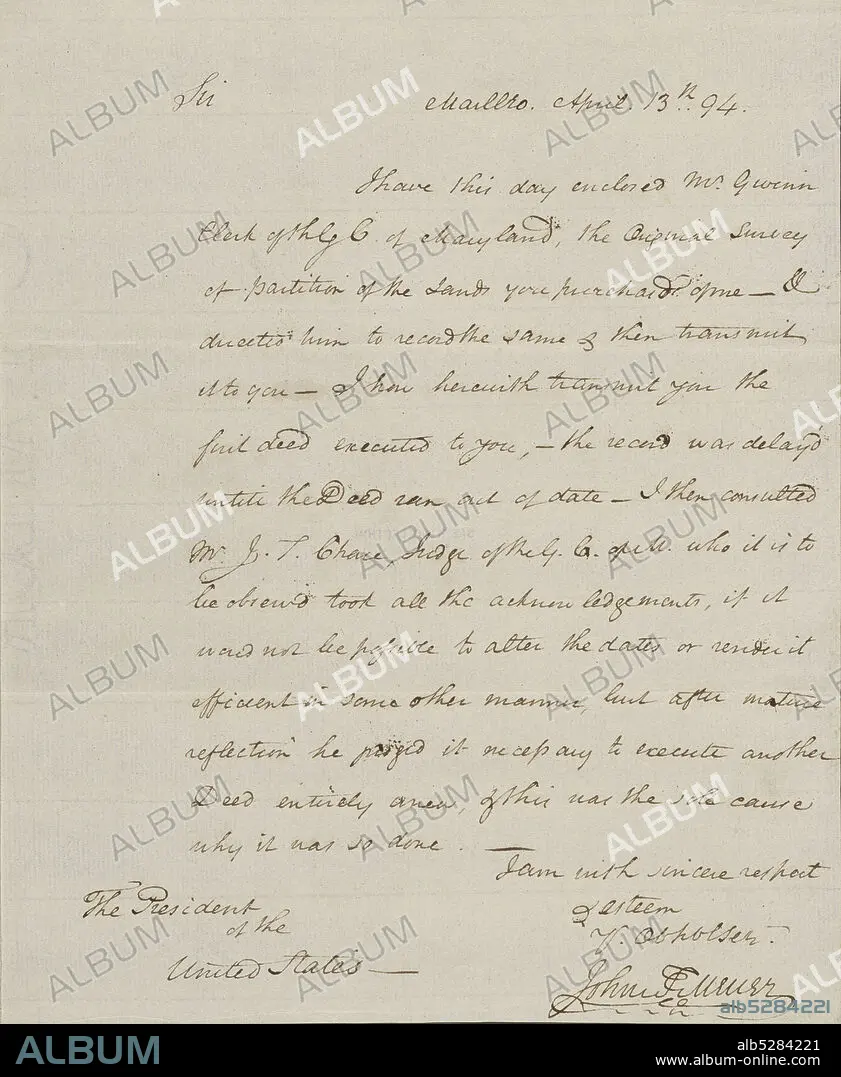 Sir
Marlbro. April. 13th. 94.
I have this day enclosed Mr. Gwinn
Clerk of the G C. of Maryland, the Original Survey
of partition of the Lands you purchas'd of me — I
directed him to record the same & then transmit
it to you — I now herewith transmit you the
first deed executed to you, — the record was delay'd
untill the Deed ran out of date — I then consulted
Mr. J. T. Chase, Judge of the G. C. of M. who it is to
be observ'd took all the acknowledgements, if it
wou'd not be possible to alter the dates or render it
efficient in some other manner, but after mature
reflection he judged it necessary to execute another
Deed entirely anew, & this was the sole cause
why it was so done. —
I am with sincere respect
& esteem
Y. Ob. Hb. Ser.
The President
of the
United States —
ALBUM
alb5284221
ALBUM
alb5284221
www.album-online.com